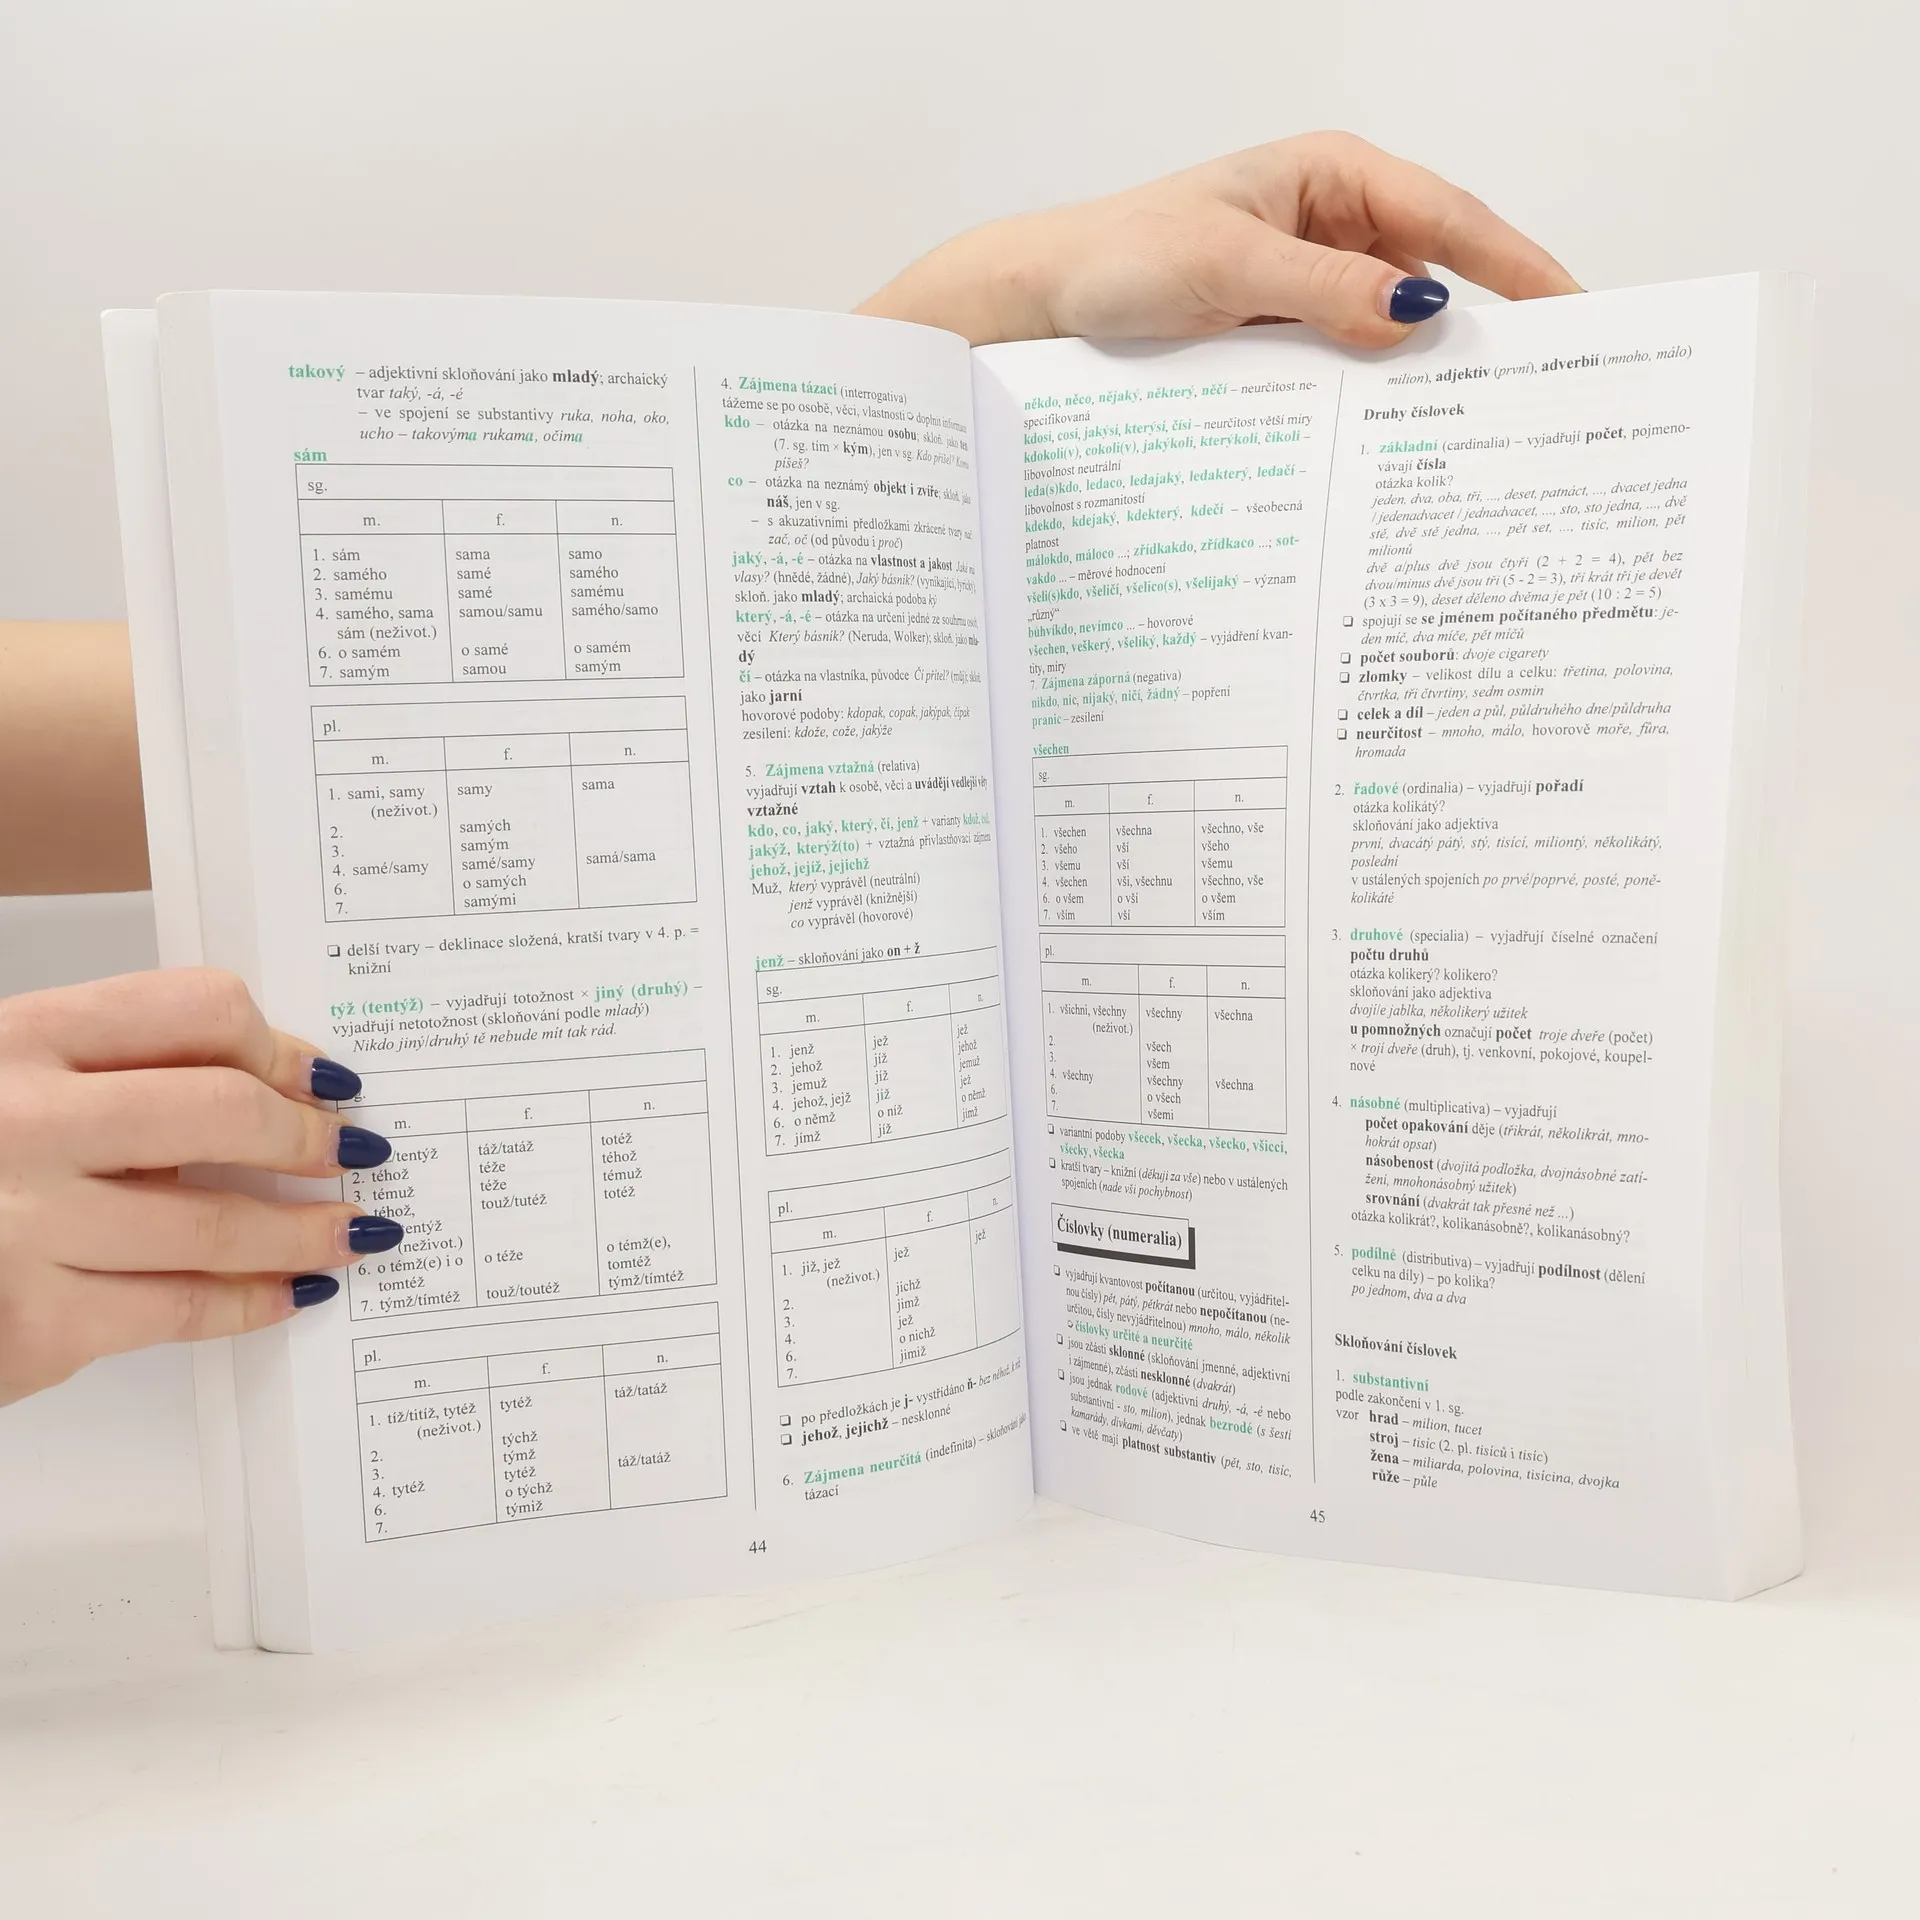 takový – adjektivní skloňování jako mladý; archaický
tvar taký, -á, -é
– ve spojení se substantivy ruka, noha, oko,
ucho – takovýma rukama, očima
sám
sg.
m. f. n.
1. sám sama samo
2. samého samé samého
3. samému samé samému
4. samého, sama samou/samu samého/samo
sám (neživot.)
6. o samém o samé o samém
7. samým samou samým
pl.
m. f. n.
1. sami, samy samy sama
(neživot.)
2. samých
3. samým
4. samé/samy samé/samy samá/sama
6. o samých
7. samými
❏ delší tvary – deklinace složená, kratší tvary v 4. p. =
knižní
týž (tentýž) – vyjadřují totožnost × jiný (druhý) –
vyjadřují netotožnost (skloňování podle mladý)
Nikdo jiný/druhý tě nebude mít tak rád.
m. f. n.
/tentýž táž/tatáž totéž
2. téhož téže téhož
3. témuž téže témuž
téhož, touž/tutéž totéž
tentýž
(neživot.)
6. o témž(e) i o o téže o témž(e),
tomtéž tomtéž
7. týmž/tímtéž touž/toutéž týmž/tímtéž
pl.
m. f. n.
1. tíž/titíž, tytéž tytéž táž/tatáž
(neživot.)
2. týchž
3. týmž
4. tytéž tytéž táž/tatáž
6. o týchž
7. týmiž
4. Zájmena tázací (interrogativa)
tážeme se po osobě, věci, vlastnosti doplnit
kdo – otázka na neznámou osobu; skloň. jako ten
(7. sg. tím × kým), jen v sg. Kdo přišel? Komu
píšeš?
co – otázka na neznámý objekt i zvíře; skloň. jako
náš, jen v sg.
– s akuzativními předložkami zkrácené tvary nač,
zač, oč (od původu i proč)
jaký, -á, -é – otázka na vlastnost a jakost Jaké má
vlasy? (hnědé, žádné), Jaký básník? (vynikající, lyrický),
skloň. jako mladý; archaická podoba ký
který, -á, -é – otázka na určení jedné ze souhrnu osob,
věcí Který básník? (Neruda, Wolker); skloň. jako mla-
dý
čí – otázka na vlastníka, původce Čí přítel? (můj); skloň.
jako jarní
hovorové podoby: kdopak, copak, jakýpak, čípak
zesílení: kdože, cože, jakýže
5. Zájmena vztažná (relativa)
vyjadřují vztah k osobě, věci a uvádějí vedlejší věty
vztažné
kdo, co, jaký, který, čí, jenž + varianty kdož, což,
jakýž, kterýž(to) + vztažná přivlastňovací zájmena
jehož, jejíž, jejichž
Muž, který vyprávěl (neutrální)
jenž vyprávěl (knižnější)
co vyprávěl (hovorové)
jenž – skloňování jako on + ž
sg.
m. f. n.
1. jenž jež jež
2. jehož jíž jehož
3. jemuž jíž jemuž
4. jehož, jejž již jež
6. o němž o níž o němž
7. jímž jíž jímž
pl.
m. f. n.
1. již, jež jež jež
(neživot.)
2. jichž
3. jimž
4. jež
6. o nichž
7. jimiž
❏ po předložkách je j- vystřídáno ň- bez něhož, k níž
❏ jehož, jejichž – nesklonné
6. Zájmena neurčitá (indefinita) – skloňování jako
tázací
44
někdo, něco, nějaký, některý, něčí – neurčitost ne-
specifikovaná
kdosi, cosi, jakýsi, kterýsi, čísi – neurčitost větší míry
kdokoli(v), cokoli(v), jakýkoli, kterýkoli, číkoli –
libovolnost neutrální
leda(s)kdo, ledaco, ledajaký, ledakterý, ledačí –
libovolnost s rozmanitostí
kdekdo, kdejaký, kdekterý, kdečí – všeobecná
platnost
málokdo, máloco ...; zřídkakdo, zřídkaco ...; sot-
vakdo ... – měrové hodnocení
všeli(s)kdo, všeličí, všelico(s), všelijaký – význam
„různý“
bůhvíkdo, nevímco ... – hovorové
všechen, veškerý, všeliký, každý – vyjádření kvan-
tity, míry
7. Zájmena záporná (negativa)
nikdo, nic, nijaký, ničí, žádný – popření
pranic – zesílení
všechen
sg.
m. f. n.
1. všechen všechna všechno, vše
2. všeho vší všeho
3. všemu vší všemu
4. všechen vši, všechnu všechno, vše
6. o všem o vší o všem
7. vším vší vším
pl.
m. f. n.
1. všichni, všechny všechny všechna
(neživot.)
2. všech
3. všem
4. všechny všechny všechna
6. o všech
7. všemi
❏ variantní podoby všecek, všecka, všecko, všicci,
všecky, všecka
❏ kratší tvary – knižní (děkuji za vše) nebo v ustálených
spojeních (nade vši pochybnost)
Číslovky (numeralia)
❏ vyjadřují kvantovost počítanou (určitou, vyjádřitel-
nou čísly) pět, pátý, pětkrát nebo nepočítanou (ne-
určitou, čísly nevyjádřitelnou) mnoho, málo, několik
číslovky určité a neurčité
❏ jsou zčásti sklonné (skloňování jmenné, adjektivní
i zájmenné), zčásti nesklonné (dvakrát)
❏ jsou jednak rodové (adjektivní druhý, -á, -é nebo
substantivní - sto, milion), jednak bezrodé (s šesti
kamarády, dívkami, děvčaty)
❏ ve větě mají platnost substantiv (pět, sto, tisíc,
milion), adjektiv (první), adverbií (mnoho, málo)
Druhy číslovek
1. základní (cardinalia) – vyjadřují počet, pojmeno-
vávají čísla
otázka kolik?
jeden, dva, oba, tři, ..., deset, patnáct, ..., dvacet jedna
/ jedenadvacet / jednadvacet, ..., sto, sto jedna, ..., dvě
stě, dvě stě jedna, ..., pět set, ..., tisíc, milion, pět
milionů
dvě a/plus dvě jsou čtyři (2 + 2 = 4), pět bez
dvou/minus dvě jsou tři (5 - 2 = 3), tři krát tři je devět
(3 x 3 = 9), deset děleno dvěma je pět (10 : 2 = 5)
❏ spojují se se jménem počítaného předmětu: je-
den míč, dva míče, pět míčů
❏ počet souborů: dvoje cigarety
❏ zlomky – velikost dílu a celku: třetina, polovina,
čtvrtka, tři čtvrtiny, sedm osmin
❏ celek a díl – jeden a půl, půldruhého dne/půldruha
❏ neurčitost – mnoho, málo, hovorově moře, fůra,
hromada
2. řadové (ordinalia) – vyjadřují pořadí
otázka kolikátý?
skloňování jako adjektiva
první, dvacátý pátý, stý, tisící, miliontý, několikátý,
poslední
v ustálených spojeních po prvé/poprvé, posté, poně-
kolikáté
3. druhové (specialia) – vyjadřují číselné označení
počtu druhů
otázka kolikerý? kolikero?
skloňování jako adjektiva
dvojí/e jablka, několikerý užitek
u pomnožných označují počet troje dveře (počet)
× trojí dveře (druh), tj. venkovní, pokojové, koupel-
nové
4. násobné (multiplicativa) – vyjadřují
počet opakování děje (třikrát, několikrát, mno-
hokrát opsat)
násobenost (dvojitá podložka, dvojnásobné zatí-
žení, mnohonásobný užitek)
srovnání (dvakrát tak přesné než ...)
otázka kolikrát?, kolikanásobně?, kolikanásobný?
5. podílné (distributiva) – vyjadřují podílnost (dělení
celku na díly) – po kolika?
po jednom, dva a dva
Skloňování číslovek
1. substantivní
podle zakončení v 1. sg.
vzor hrad – milion, tucet
stroj – tisíc (2. pl. tisíců i tisíc)
žena – miliarda, polovina, tisícina, dvojka
růže – půle
45